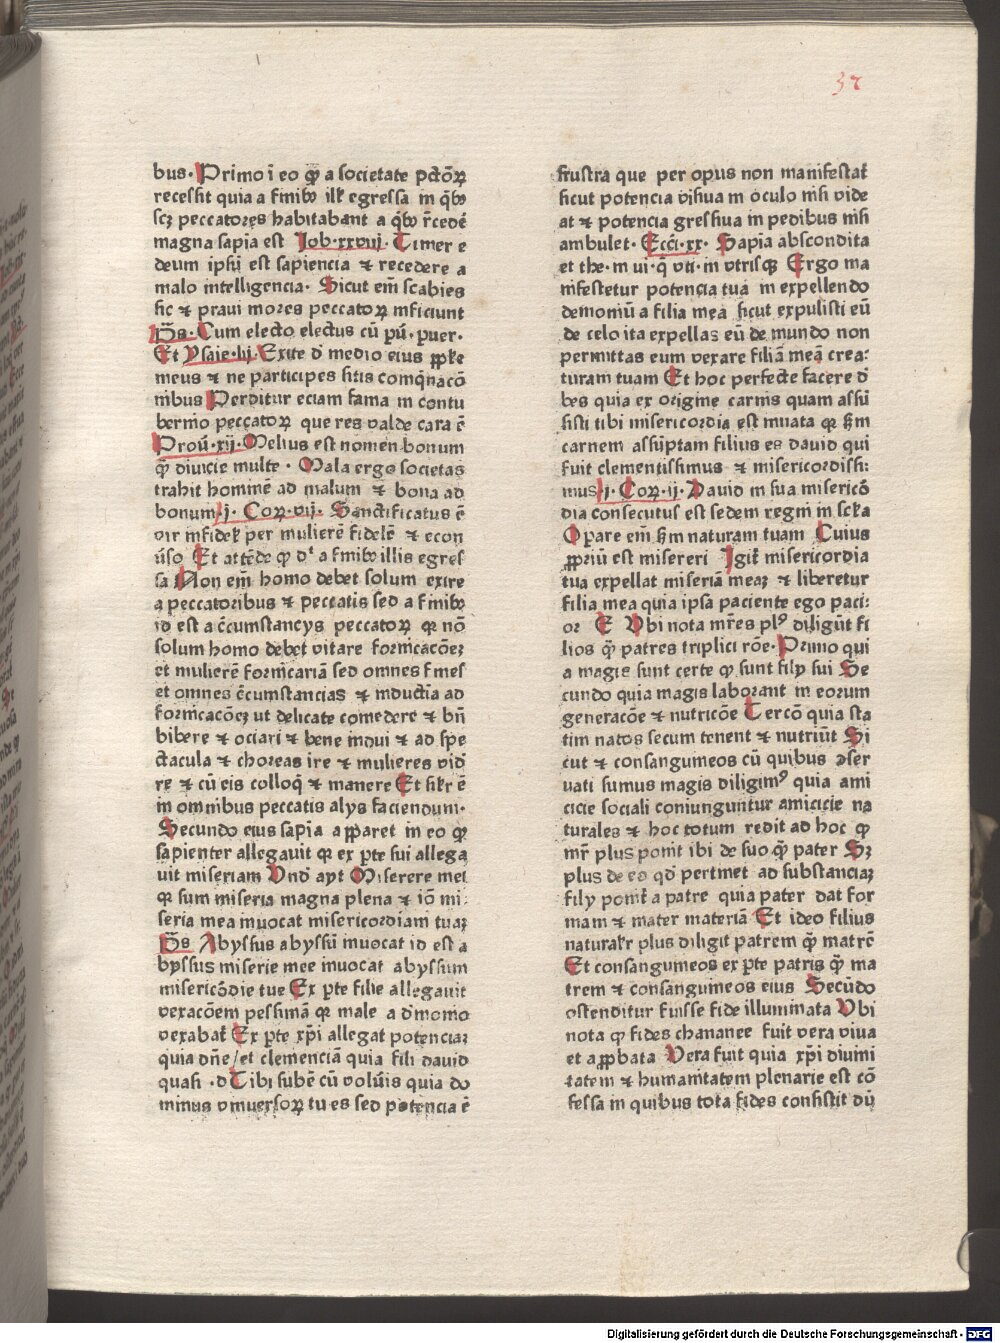 37
bus. Primo ī eo ꝙ a societate pctōꝝ
recessit quia a finibꝫ illis egressa in qͥbꝫ
scꝫ peccatores habitabant a qͥbꝫ r̄cedē
magna sapīa est Iob.xxviij. Timere
deum ipsū est sapiencia ⁊ recedere a
malo intelligencia. Sicut em̄ scabies
sic ⁊ praui mores peccatoꝝ inficiunt
P̄s. Cum electo electus cū ꝑu. ꝑuer.
Et Ysaie.lij. Exite d̄ medio eius pp̄le
meus ⁊ ne participes sitis comq̄nacō
nibus Perditur eciam fama in contu
bernio peccatoꝝ que res valde cara ē
Prou̅.xij. Melius est nomen bonum
ꝙ̄ diuicie multe. Mala ergo societas
trahit hominē ad malum ⁊ bona ad
bonum.j. Coꝝ.vij. Sanctificatus ē
vir infidel̓ per mulierē fidelē ⁊ econ
u̅so Et attēde ꝙ dr̄ a finibꝫ illis egres
sa Non em̄ homo debet solum exire
a peccatoribus ⁊ peccatis sed a finibꝫ
id est a c̄cumstancys peccatoꝝ qꝛ nō
solum homo debet vitare fornicacōeꝫ
et mulierē fornicariā sed omnes fines
et omnes c̄cumstancias ⁊ inductīa ad
fornicacōeꝫ ut delicate comedere ⁊ bn̄
bibere ⁊ ociari ⁊ bene indui ⁊ ad spe
ctacula ⁊ choreas ire ⁊ mulieres vid̄
re ⁊ cū eis colloq̄ ⁊ manere Et sil̓r ē
in omnibus peccatis alys faciendum.
Secundo eius sapīa apparet in eo ꝙ
sapienter allegauit qꝛ ex ꝑte sui allega
uit miseriam Vnd̄ ayt Miserere mei
qꝛ sum miseria magna plena ⁊ iō mi
seria mea inuocat misericordiam tuaꝫ
P̄s Abyssus abyssū inuocat id est a
byssus miserie mee inuocat abyssum
misericōdie tue Ex ꝑte filie allegauit
vexacōem pessimā qꝛ male a d̄monio
vexabat̓ Ex ꝑte xp̄i allegat potenciaꝫ
quia dn̄e / et clemenciā quia fili dauid
quasi .d. Tibi subē cū volu̅is quia do
minus vniuersoꝝ tu es sed potencia ē
frustra que per opus non manifestat̓
sicut potencia visiua in oculo nisi vide
at ⁊ potencia gressiua in pedibus nisi
ambulet. Ecci.xx. Sapīa abscondita
et the. in ui. q̄ vti. in vtrisqꝫ Ergo ma
nifestetur potencia tua in expellendo
demoniū a filia mea sicut expulisti eū
de celo ita expellas eū de mundo non
permittas eum vexare filiā meā crea:
turam tuam Et hoc perfecte facere d̄
bes quia ex origine carnis quam assū
sisti tibi misericordia est innata qꝛ scd̄m
carnem assūptam filius es dauid qui
fuit clementissimus ⁊ misericordissi:
mus.j. Coꝝ.ij. Dauid in sua misericō
dia consecutus est sedem regni in scl̓a
Opare em̄ scd̄m naturam tuam Cuius
ꝓpriū est misereri Igit̓ misericordia
tua expellat miseriā meaꝫ ⁊ liberetur
filia mea quia ipsa paciente ego paci:
or E Vbi nota mr̄es pl⁹ diligūt fi
lios ꝙ̄ patres triplici rōe. Primo qui
a magis sunt certe ꝙ sunt fily sui Se
cundo quia magis laborant in eorum
generacōe ⁊ nutricōe Tercō quia sta
tim natos secum tenent ⁊ nutriūt Si
cut ⁊ consanguineos cū quibus ꝯser
uati sumus magis diligim⁹ quia ami
cicie sociali coniunguntur amicicie na
turales ⁊ hoc totum redit ad hoc ꝙ
mr̄ plus ponit ibi de suo ꝙ̄ pater Sꝫ
plus de eo qd̄ pertinet ad substanciaꝫ
fily ponit̓ a patre quia pater dat for
mam ⁊ mater materiā Et ideo filius
natural̓r plus diligit patrem ꝙ̄ matrē
Et consanguineos ex ꝑte patris ꝙ̄ ma
trem ⁊ consanguineos eius Secūdo
ostenditur fuisse fide illuminata Vbi
nota ꝙ fides chananee fuit vera viua
et approbata Vera fuit quia xp̄i diuini
tatem ⁊ humanitatem plenarie est cō
fessa in quibus tota fides consistit dū
Digitalisierung gefördert durch die Deutsche Forschungsgemeinschaft - DFG